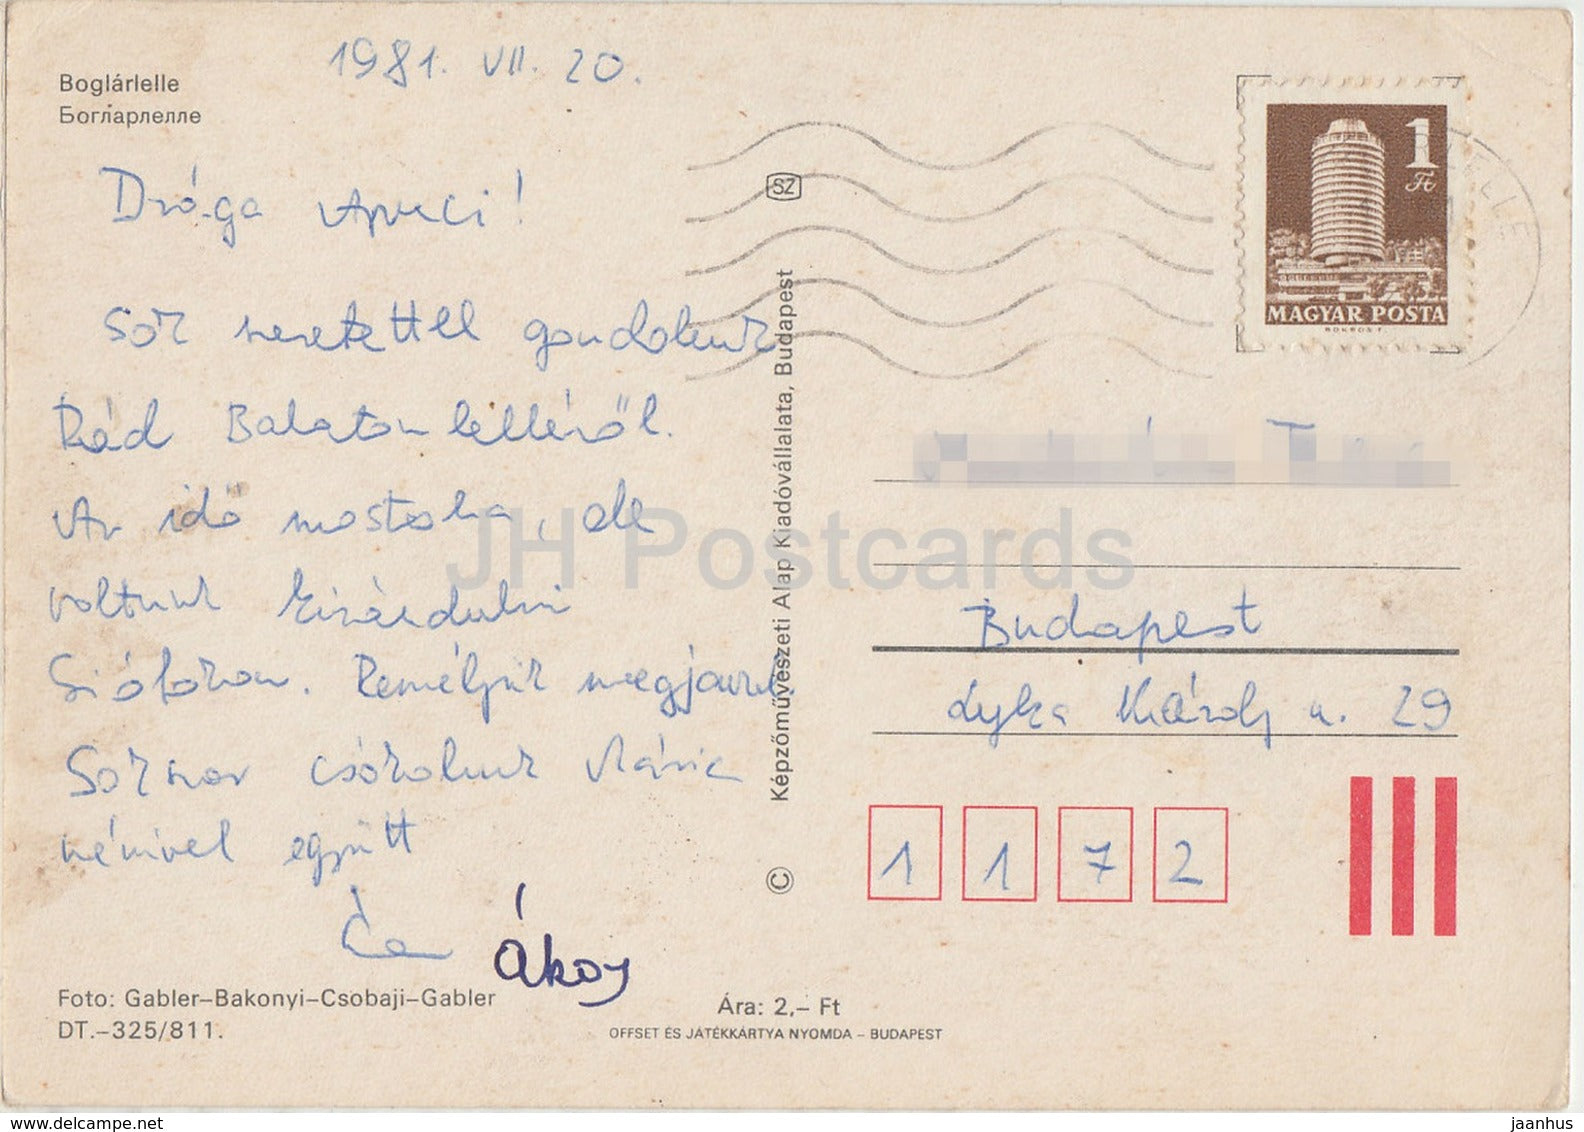 Boglárlelle
Боглáрлелле
1981. VII. 20.
Drága Apuci!
Sok szeretettel gondolunk
Rád Balatonlelléről.
Az idő mostoha, de
voltunk kirándulni
Siófokon. Reméljük megjavul.
Sokszor csókolunk Mária
nénivel együtt
Ákos
SZ
Képzőművészeti Alap Kiadóvállalata, Budapest
©
1 Ft
MAGYAR POSTA
LELLE
Budapest
Lyka Károly u. 29
1 1 7 2
Foto: Gabler–Bakonyi–Csobaji–Gabler
DT.–325/811.
Ára: 2,– Ft
OFFSET ÉS JÁTÉKKÁRTYA NYOMDA – BUDAPEST
JH Postcards
www.delcampe.net
jaanhus